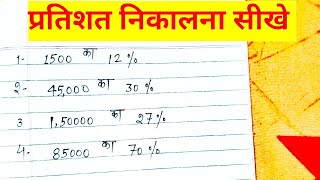 प्रतिशत निकालना सीखे
1- 1500 का 12 %
२- 45,000 का 30 %
3 1,50000 का 27 %
4. 85000 का 70 %